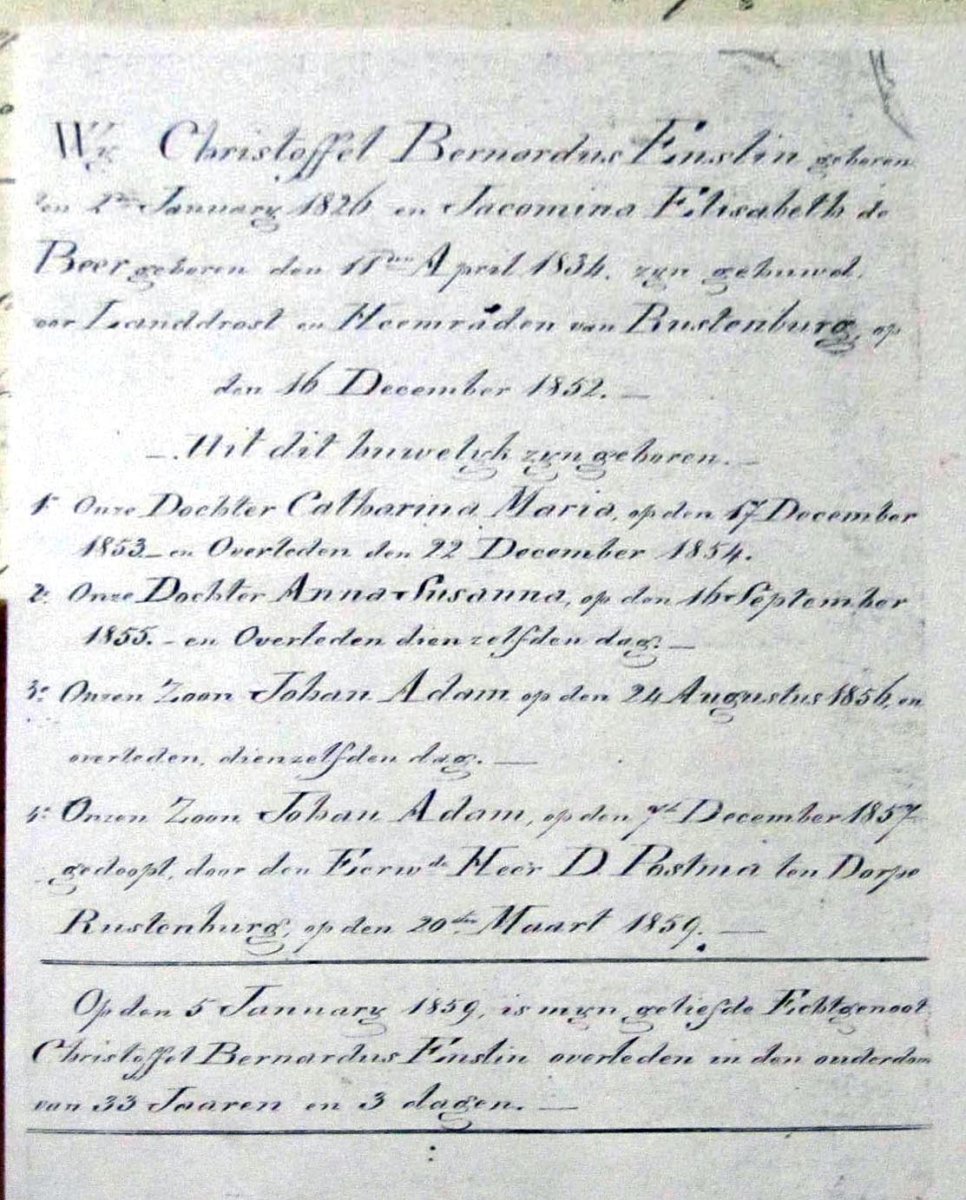 Wy Christoffel Bernardus Enslin geboren
den 2den January 1826 en Jacomina Elisabeth de
Beer geboren den 11den April 1834. zyn gehuwd.
voor Landdrost en Heemraden van Rustenburg, op
den 16 December 1852. —
— Uit dit huwelyk zyn geboren. —
1e Onze Dochter Catharina Maria, op den 17 December
1853 – en Overleden den 22 December 1854.
2e Onze Dochter Anna Susanna, op den 16 September
1855. – en Overleden dienzelfden dag. —
3e Onzen Zoon Johan Adam op den 24 Augustus 1856, en
overleden, dienzelfden dag. —
4e Onzen Zoon Johan Adam, op den 7de December 1857
gedoopt, door den Eerwde Heer D Postma ten Dorpe
Rustenburg, op den 20sten Maart 1859. —
Op den 5 January 1859, is myn geliefde Echtgenoot
Christoffel Bernardus Enslin overleden in den ouderdom
van 33 Jaaren en 3 dagen. —